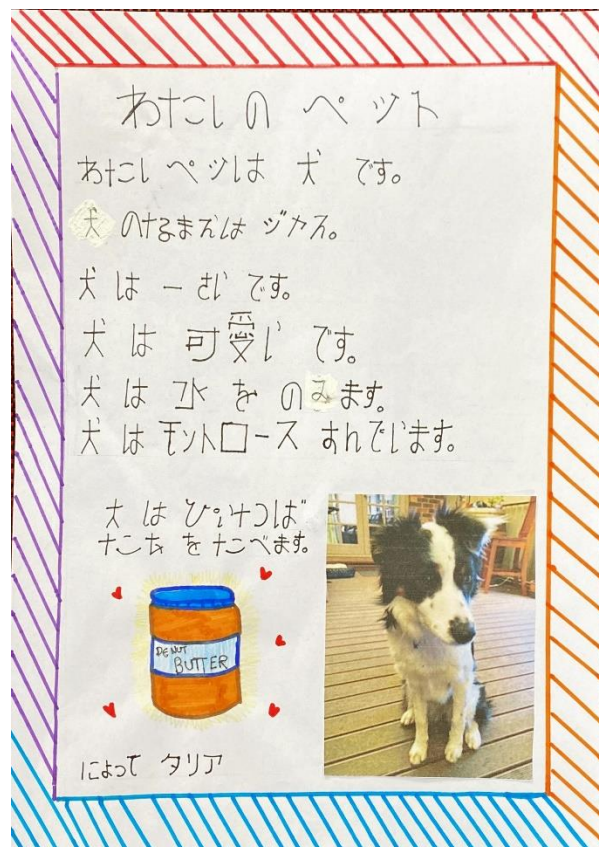 わたしの ペット
わたし ペッは 犬 です。
犬 のなまえは ジャス。
犬 は 一 さい です。
犬 は 可愛い です。
犬 は 水 を のみます。
犬 は モントロース すんでいます。
犬 は
を たべます。
PENUT
BUTTER
によって タリア